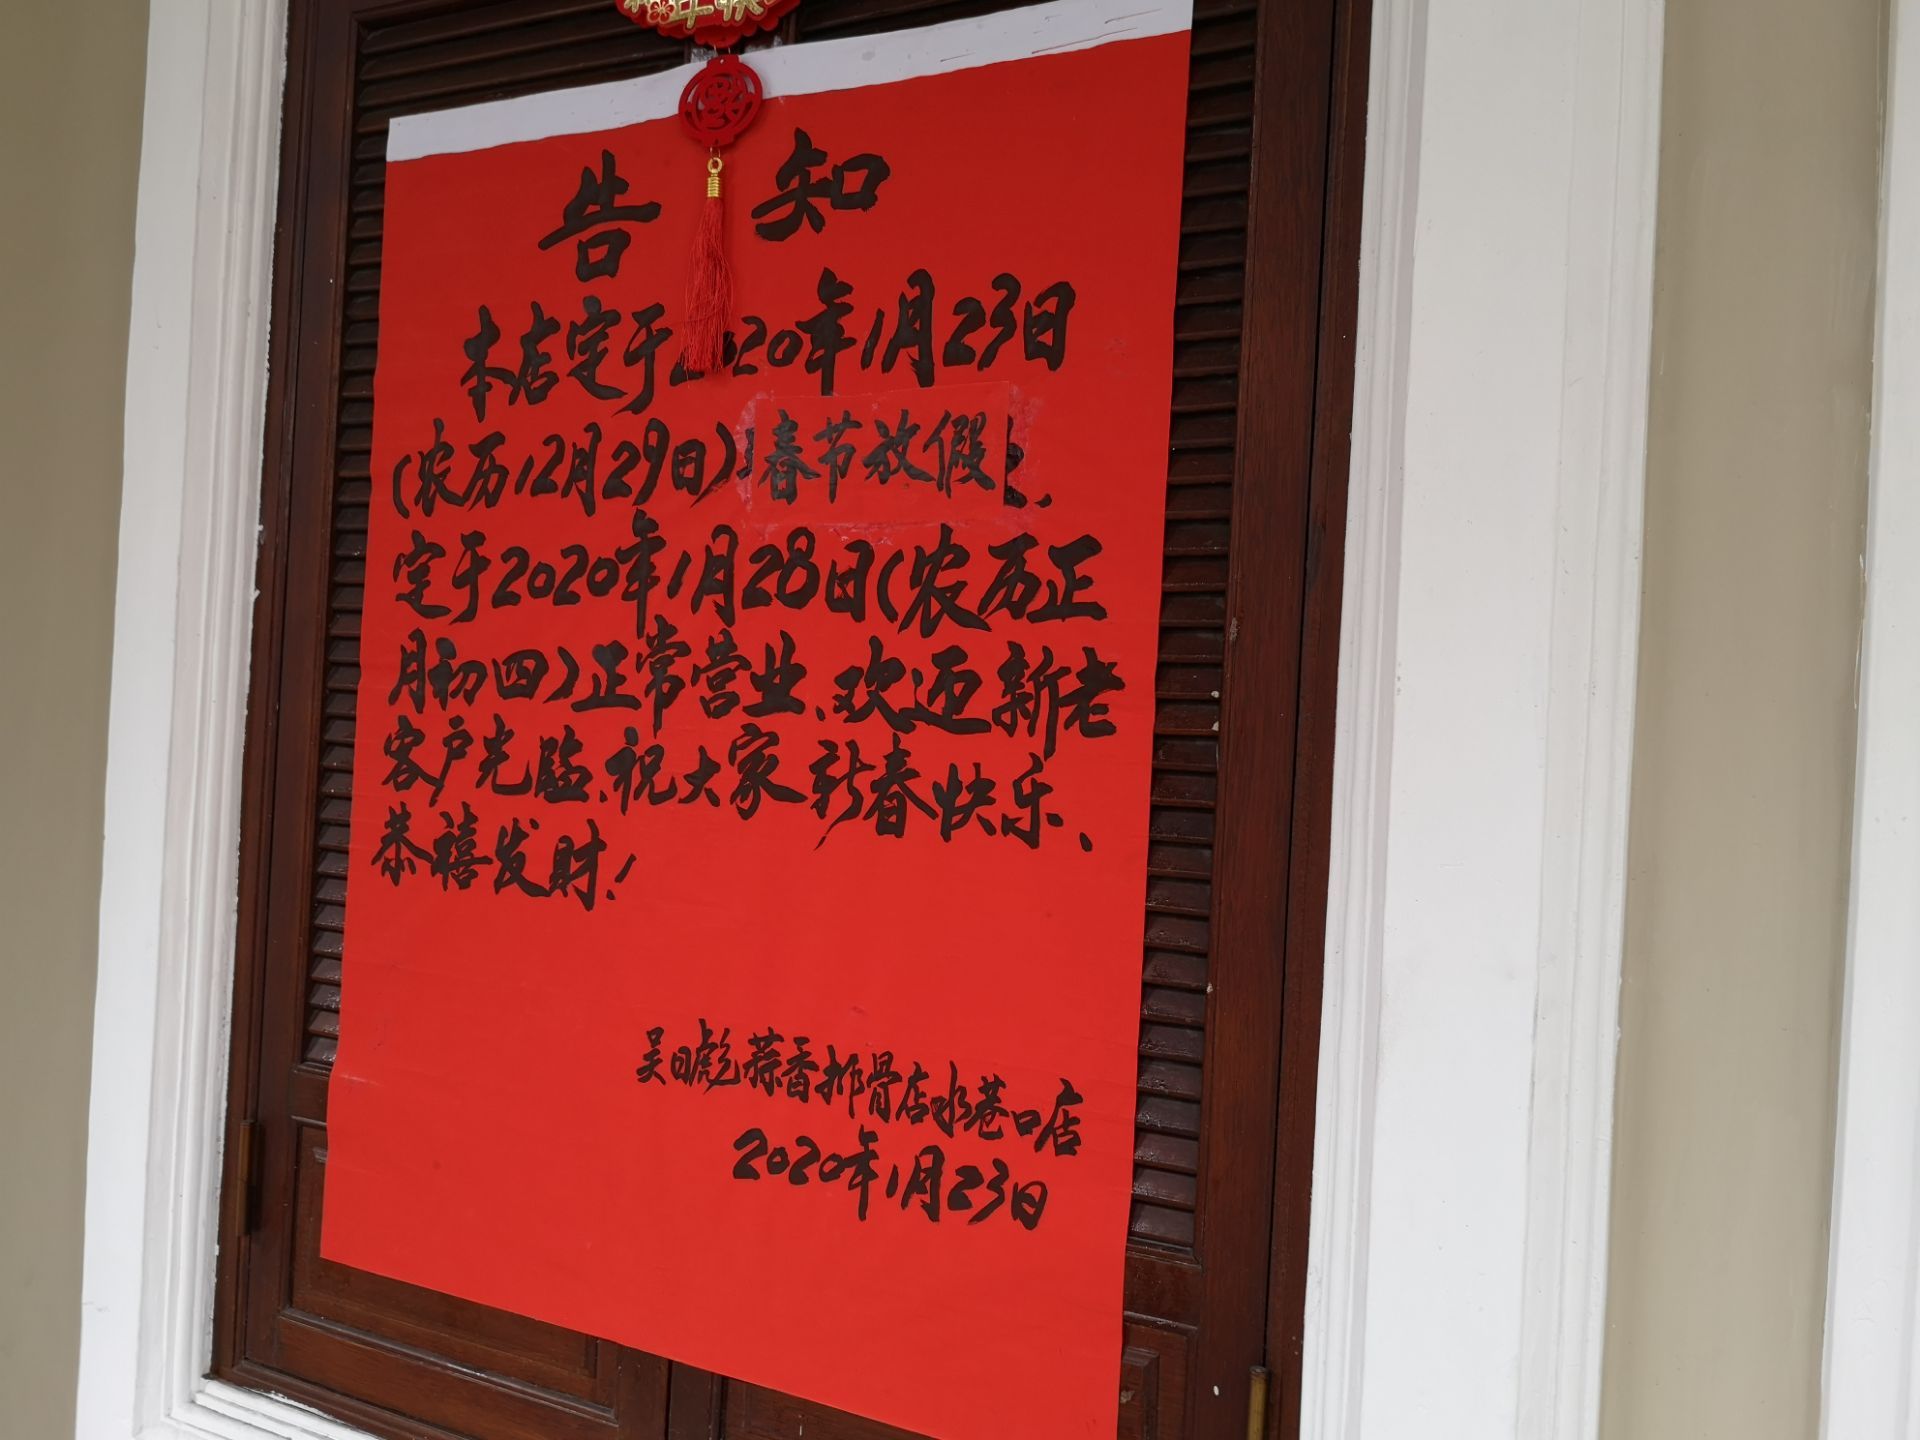 告知
本店定于2020年1月23日
(农历12月29日)春节放假、
定于2020年1月28日(农历正
月初四)正常营业、欢迎新老
客户光临、祝大家新春快乐、
恭禧发财!
吴日彪蒜香排骨店水巷口店
2020年1月23日